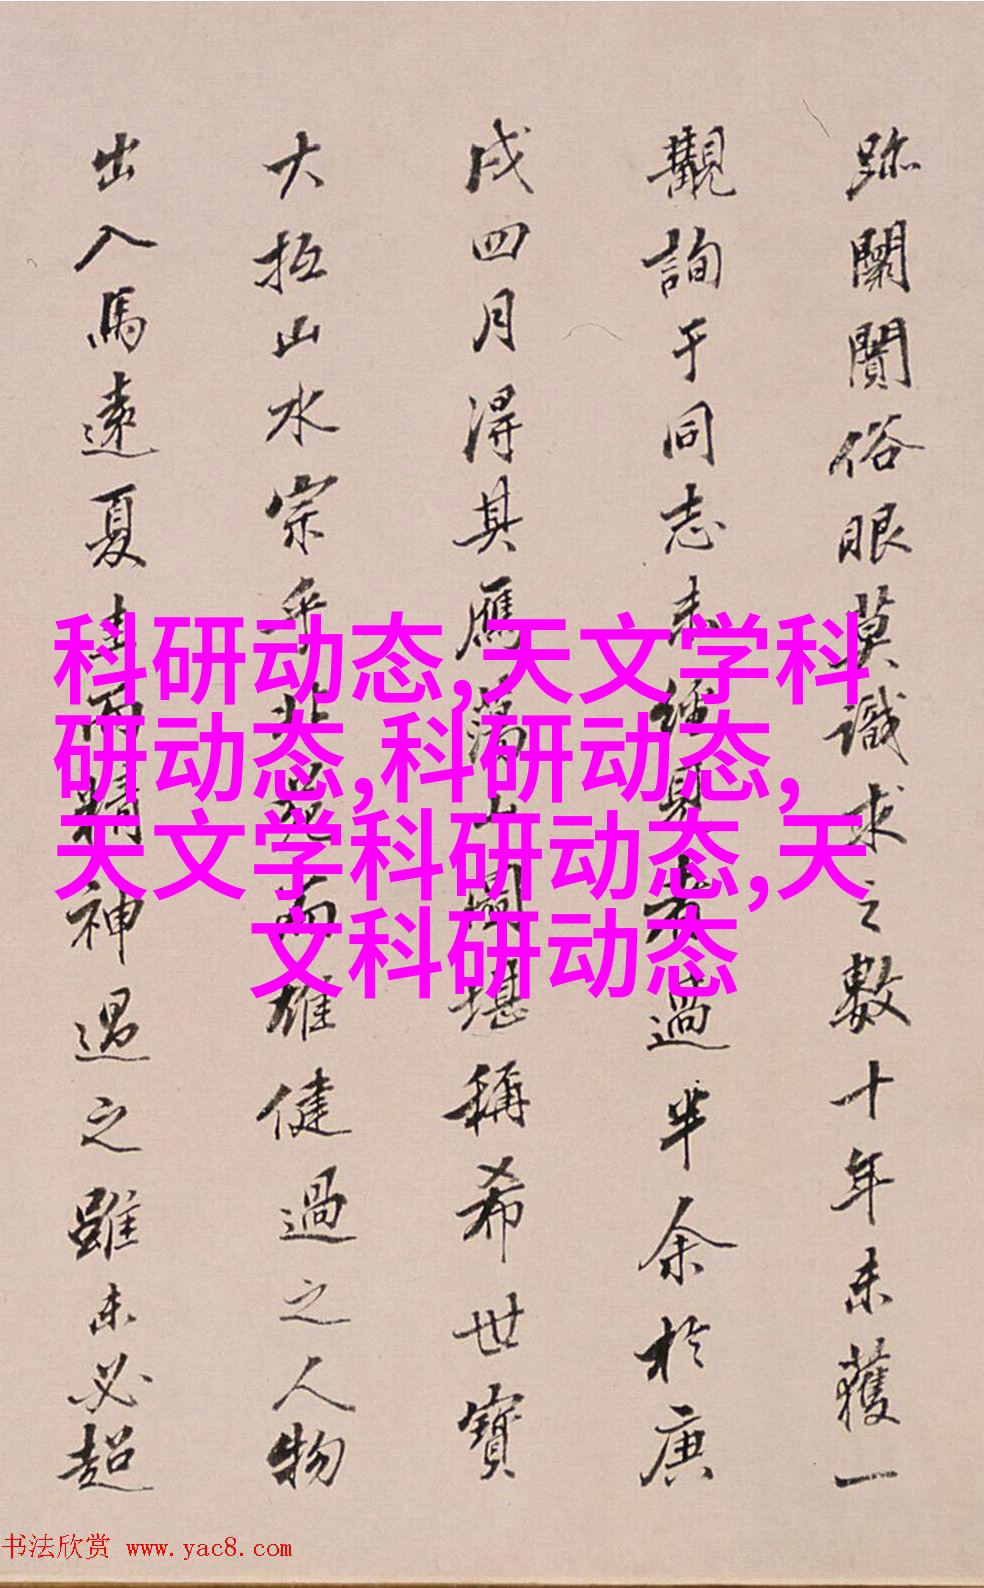 跡闤闠俗眼莫識求之數十年未獲一
觀詢于同志未經見者過半余於庚
戌四月得其鴈蕩圖堪稱希世寶
大抵山水宗乎北苑而雄健過之人物
出入馬遠夏圭而精神過之雖未必超
科研动态,天文学科
研动态,科研动态,
天文学科研动态,天
文科研动态
书法欣赏 www.yac8.com